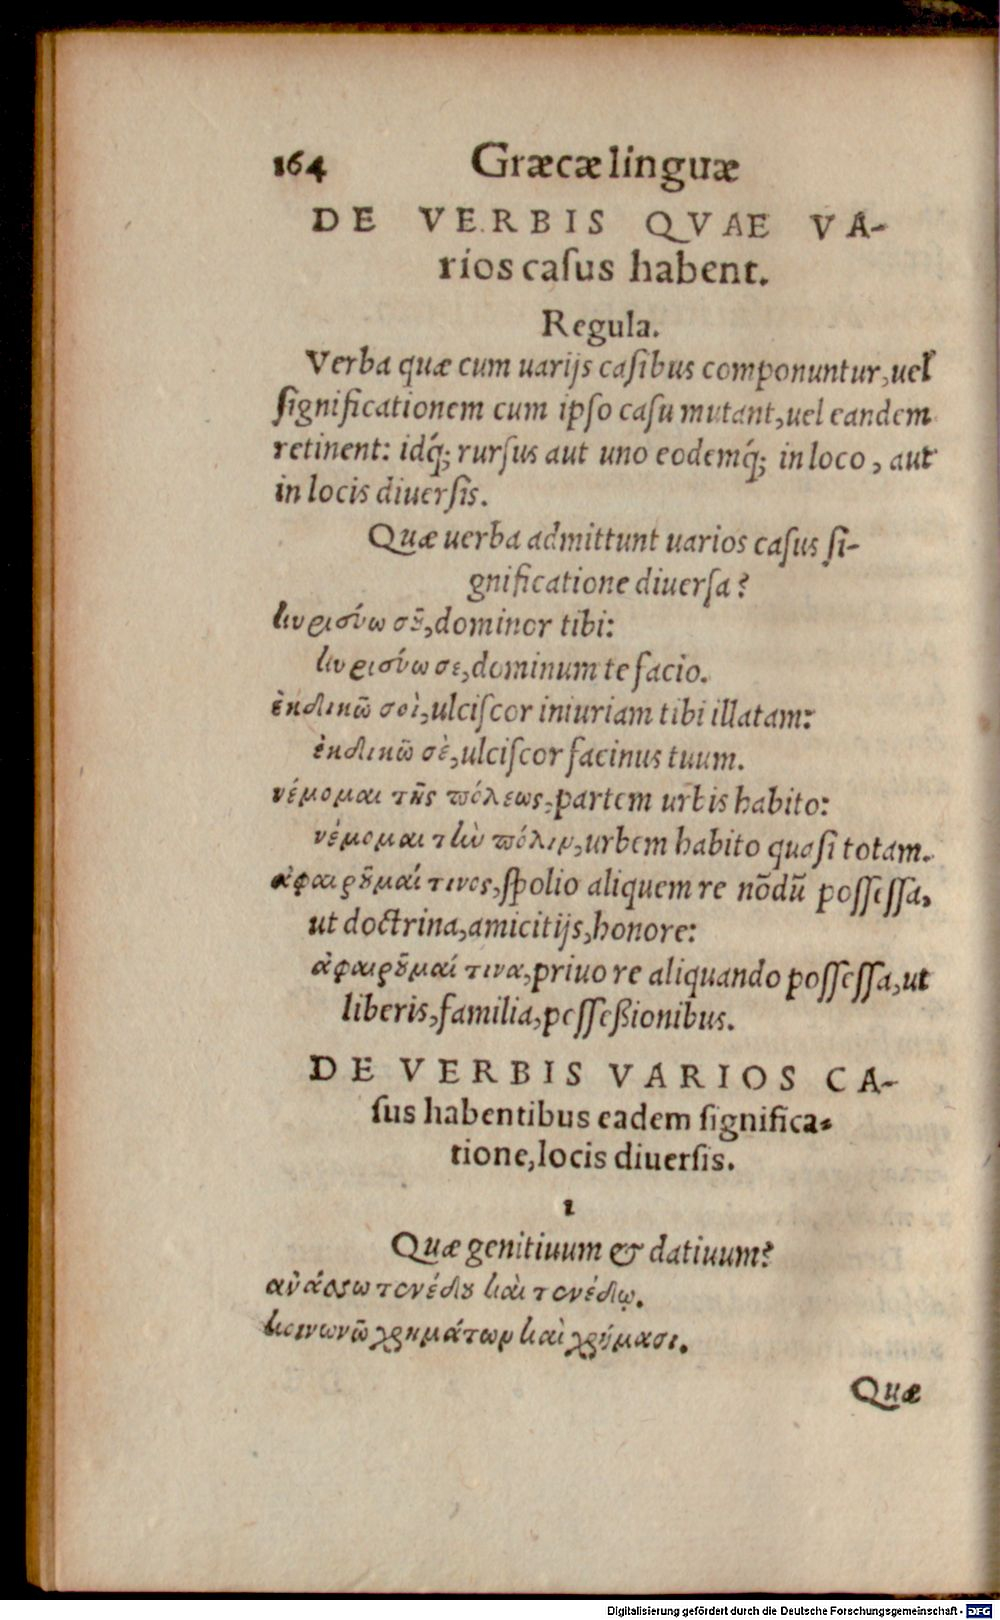 164 Græcæ linguæ
DE VERBIS QVAE VA-
rios casus habent.
Regula.
Verba quæ cum uarijs casibus componuntur, uel
significationem cum ipso casu mutant, uel eandem
retinent: idq́; rursus aut uno eodemq́; in loco, aut
in locis diuersis.
Quæ uerba admittunt uarios casus si-
gnificatione diuersa?
κυριεύω σȣ͂, dominor tibi:
κυριεύω σε, dominum te facio.
ἐκδικῶ σοὶ, ulciscor iniuriam tibi illatam:
ἐκδικῶ σὲ, ulciscor facinus tuum.
νέμομαι τῆς πόλεως, partem urbis habito:
νέμομαι τὴν πόλιν, urbem habito quasi totam.
ἀφαιρȣ͂μαί τινος, spolio aliquem re nōdū possessa,
ut doctrina, amicitijs, honore:
ἀφαιρȣ͂μαί τινα, priuo re aliquando possessa, ut
liberis, familia, possessionibus.
DE VERBIS VARIOS CA-
sus habentibus eadem significa-
tione, locis diuersis.
1
Quæ genitiuum & datiuum?
ἀνάσσω τενέδȣ καὶ τενέδῳ.
κοινωνῶ χρημάτων καὶ χρήμασι.
Quæ
Digitalisierung gefördert durch die Deutsche Forschungsgemeinschaft - DFG